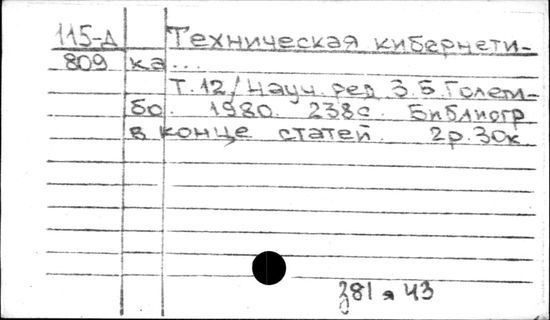 115-Д Техническая кибернети-
809 ка...
Т.12/Науч. ред. З.Б.Голем-
бо. 1980. 238с. Библиогр
в конце статей. 2р.30к
з81 я 43